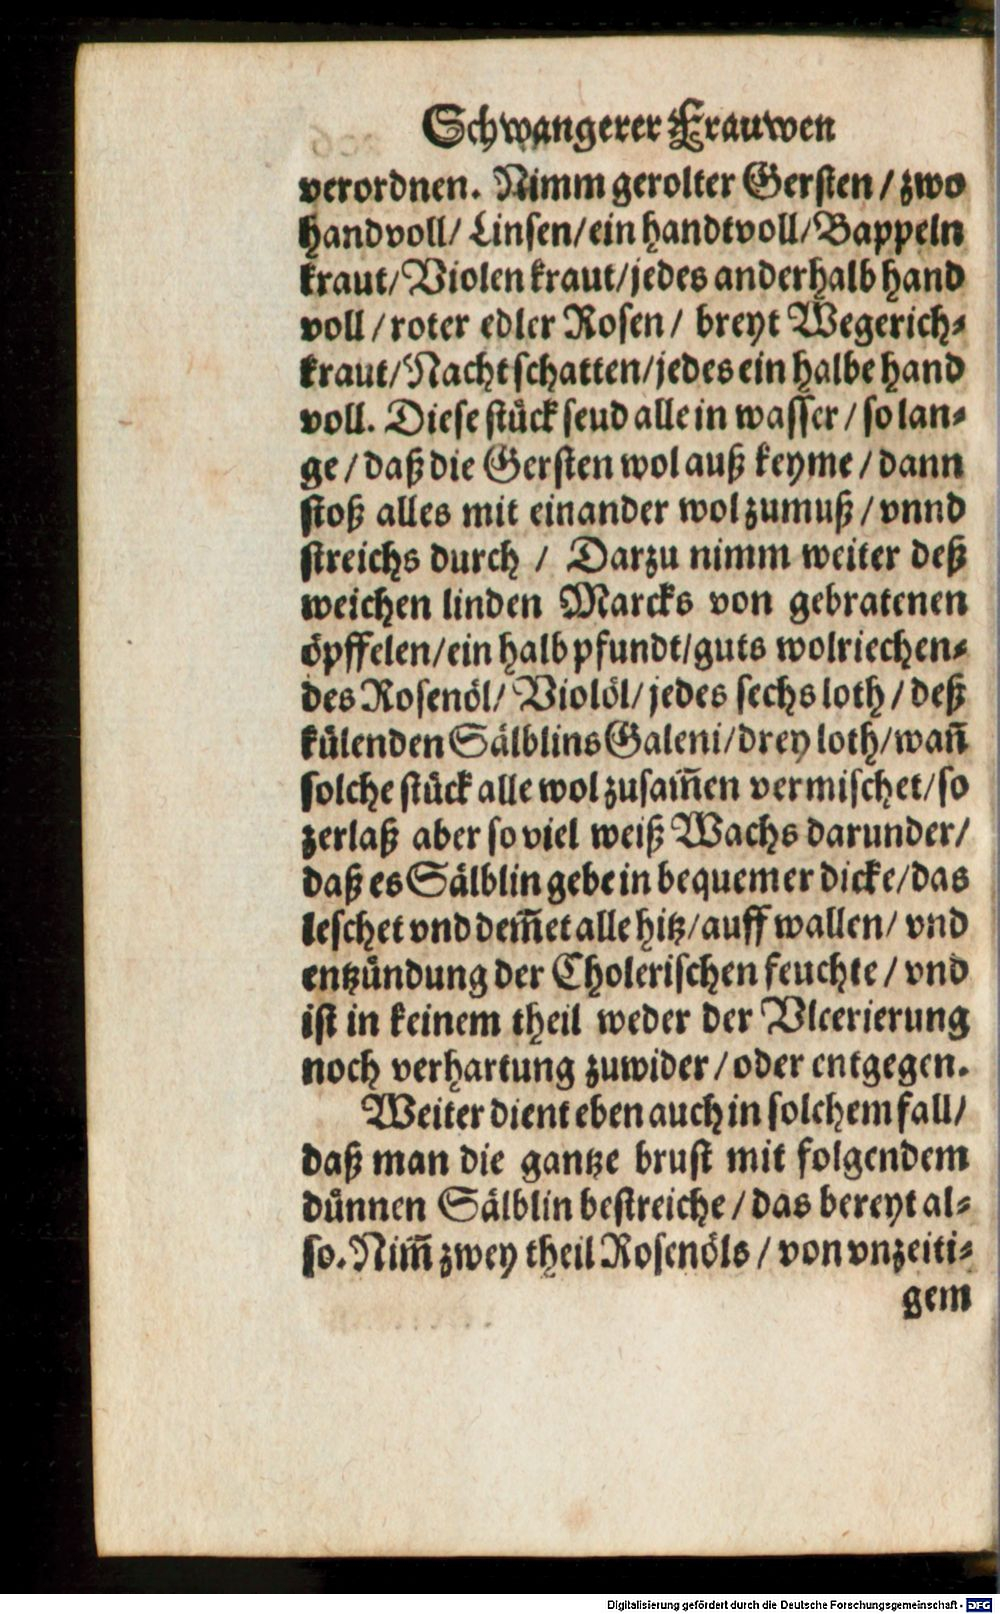 Schwangerer Frauwen
verordnen. Nimm gerolter Gersten / zwo
handvoll / Linsen / ein handtvoll / Bappeln
kraut / Violen kraut / jedes anderhalb hand
voll / roter edler Rosen / breyt Wegerich⸗
kraut / Nachtschatten / jedes ein halbe hand
voll. Diese stůck seud alle in wasser / so lan⸗
ge / daß die Gersten wol auß keyme / dann
stoß alles mit einander wol zumuß / vnnd
streichs durch / Darzu nimm weiter deß
weichen linden Marcks von gebratenen
öpffelen / ein halb pfundt / guts wolriechen⸗
des Rosenöl / Violöl / jedes sechs loth / deß
kůlenden Sälblins Galeni / drey loth / wañ
solche stůck alle wol zusam̃en vermischet / so
zerlaß aber so viel weiß Wachs darunder /
daß es Sälblin gebe in bequemer dicke / das
leschet vnd dem̃et alle hitz / auff wallen / vnd
entzůndung der Cholerischen feuchte / vnd
ist in keinem theil weder der Vlcerierung
noch verhartung zuwider / oder entgegen.
Weiter dient eben auch in solchem fall /
daß man die gantze brust mit folgendem
důnnen Sälblin bestreiche / das bereyt al⸗
so. Nim̃ zwey theil Rosenöls / von vnzeiti⸗
gem
Digitalisierung gefördert durch die Deutsche Forschungsgemeinschaft - DFG